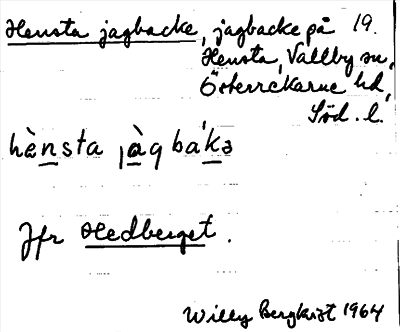 Hensta jagbacke, jagbacke på 19.
Hensta, Vallby sn,
Österrekarne hd,
Söd. l.
hènsta jàgbákə
Jfr Hedberget.
Willy Bergkvist 1964